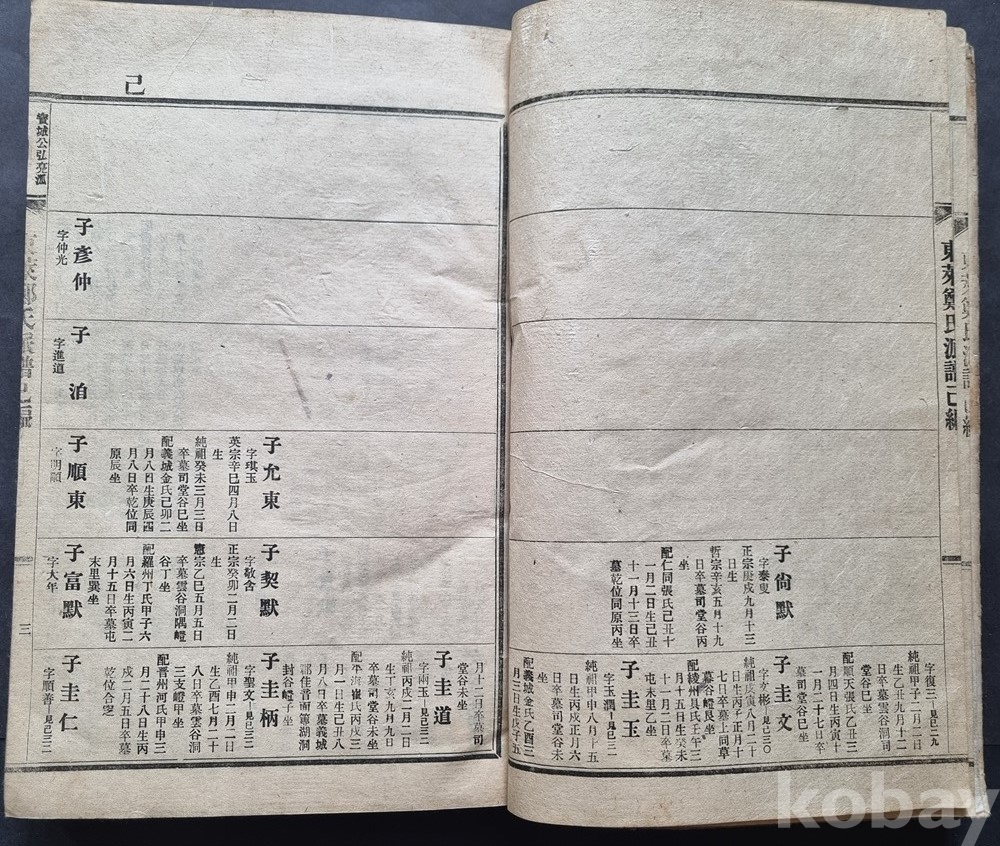 東萊鄭氏派譜 己編
子尙默
字泰叟
正宗庚戌九月十三
日生
哲宗辛亥五月十九
日卒墓司堂谷丙
坐
配仁同張氏己丑十
一月二日生己丑
十一月十三日卒
墓乾位同原丙坐
字復三 見己二九
純祖甲子二月二日
日卒墓雲谷洞司
堂谷巳坐
配順天張氏乙丑三
月四日生丙寅十
一月二十七日卒
墓司堂谷巳坐
子圭文
見己三〇
純祖庚寅八月二十
日生丙子正月十
七日卒墓上同草
墓谷嶝艮坐
配綾州具氏壬午三
月十五日生癸未
十一月二日卒墓
屯末里乙坐
子圭玉
字玉潤 見己三一
純祖甲申八月十五
日生丙戌正月六
日卒墓司堂谷未
坐
配義城金氏乙酉三
月三日生戊子五
己
寶城公弘亮派
三
子彥仲
字仲光
子 泊
字進道
子允東
字琪玉
英宗辛巳四月八日
生
純祖癸未三月三日
卒墓司堂谷巳坐
配義城金氏己卯二
月八日生庚辰四
月八日卒乾位同
原辰坐
子順東
字明順
子契默
字敬舍
正宗癸卯二月二日
生
憲宗乙巳五月五日
卒墓雲谷洞隅嶝
谷丁坐
配羅州丁氏甲子六
月六日生丙寅二
月十五日卒墓屯
末里巽坐
子富默
字大年
月十二日卒墓司
堂谷未坐
子圭道
字兩玉 見己三二
純祖丙戌二月二日
生丁亥九月九日
卒墓司堂谷未坐
配平海崔氏丙戌三
月一日生己丑八
月八日卒墓義城
封谷嶝子坐
子圭柄
字聖文 見己三二
純祖甲申二月二日
生乙酉七月二十
八日卒墓雲谷洞
三支嶝甲坐
配晋州河氏甲申三
月二十八日生丙
戌二月五日卒墓
乾位合窆
子圭仁
字順善 見己三三